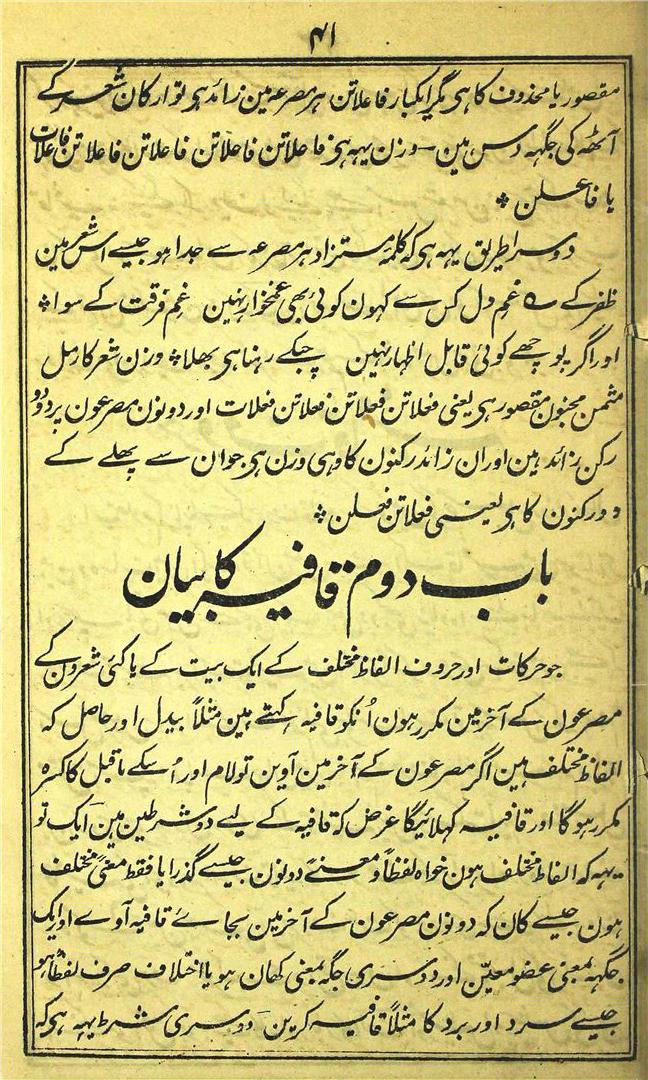 ۴۱
مقصور یا محذوف کا ہی مگر ایکبار فاعلاتن ہر مصرعہ مین زائد ہی تو ارکان شعر کے
آٹھہ کی جگہہ دس ہین ۔ وزن یہہ ہی فاعلاتن فاعلاتن فاعلاتن فاعلاتن فاعلات
یا فاعلن ٭
دوسرا طریق یہہ ہی کہ کلمۂ مستزاد ہر مصرعہ سے جدا ہو جیسے اس شعر مین
ظفر کے ؎ غمِ دل کس سے کہون کوئی بھی غمخوار نہین غمِ فرقت کے سوا ٭
اور اگر پوچھے کوئی قابل اظہار نہین چپکے رہنا ہی بھلا ٭ وزن شعر کا رمل
مثمن مخبون مقصور ہی یعنی فعلاتن فعلاتن فعلاتن فعلات اور دونون مصرعون پر دو دو
رکن زائد ہین اور ان زائد رکنون کا وہی وزن ہی جو ان سے پہلے کے
دو رکنون کا ہی یعنی فعلاتن فعلن ٭
باب دوم قافیہ کا بیان
جو حرکات اور حروف الفاظ مختلف کے ایک بیت کے یا کئی شعرون کے
مصرعون کے آخر مین مکرر ہون اُنکو قافیہ کہتے ہین مثلاً بیدل اور حاصل کہ
الفاظ مختلف ہین اگر مصرعون کے آخر مین آوین تو لام اور اُسکے ماقبل کا کسرہ
مکرر ہوگا اور قافیہ کہلائیگا غرض کہ قافیہ کے لیے دو شرطین ہین ایک تو
یہہ کہ الفاظ مختلف ہون خواہ لفظاً و معنےً دونون جیسے گذرا یا فقط معنیً مختلف
ہون جیسے کان کہ دونون مصرعون کے آخر مین بجاے قافیہ آوے اور ایک
جگہہ بمعنی عضو معیّن اور دوسری جگہ بمعنی کھان ہو یا اختلاف صرف لفظاً ہو
جیسے سرد اور برد کا مثلاً قافیہ کرین ۔ دوسری شرط یہہ ہی کہ